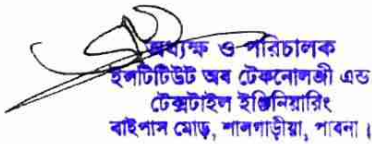 অধ্যক্ষ ও পরিচালক
ইনষ্টিটিউট অব টেকনোলজী এন্ড
টেক্সটাইল ইঞ্জিনিয়ারিং
বাইপাস মোড়, শালগাড়ীয়া, পাবনা।